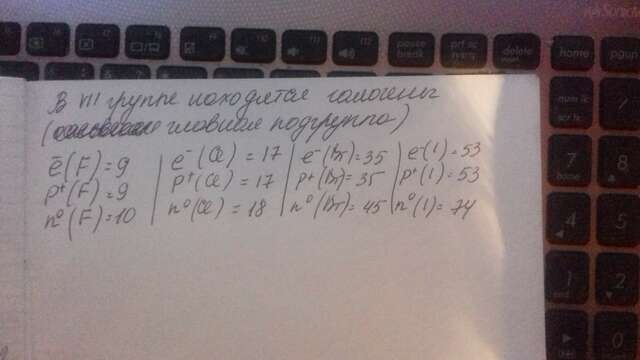 В VII группе находятся галогены
( главная подгруппа)
ē(F)=9 | e⁻(Cl)=17 | e⁻(Br)=35 | e⁻(I)=53
p⁺(F)=9 | p⁺(Cl)=17 | p⁺(Br)=35 | p⁺(I)=53
n⁰(F)=10 | n⁰(Cl)=18 | n⁰(Br)=45 | n⁰(I)=74
pause
prt sc
delete
home
pgup
num lk
scr lk
7
home
8
4
5
1
end
2
0